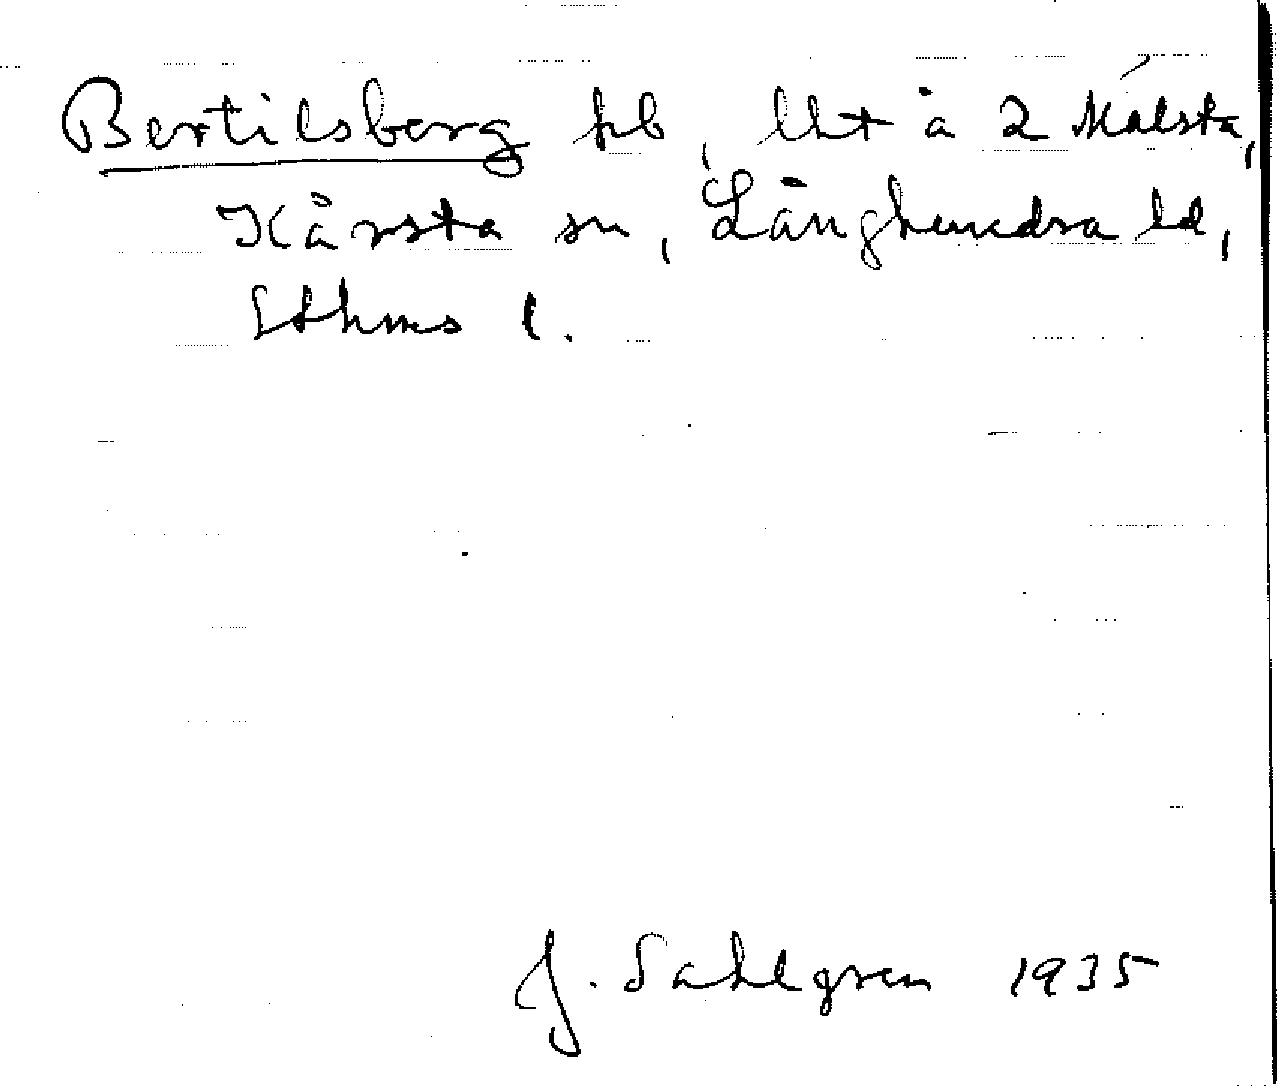 Bertilsberg hb, lht å 2 Målsta,
Kårsta sn, Långhundra hd,
Sthms l.
J. Sahlgren 1935